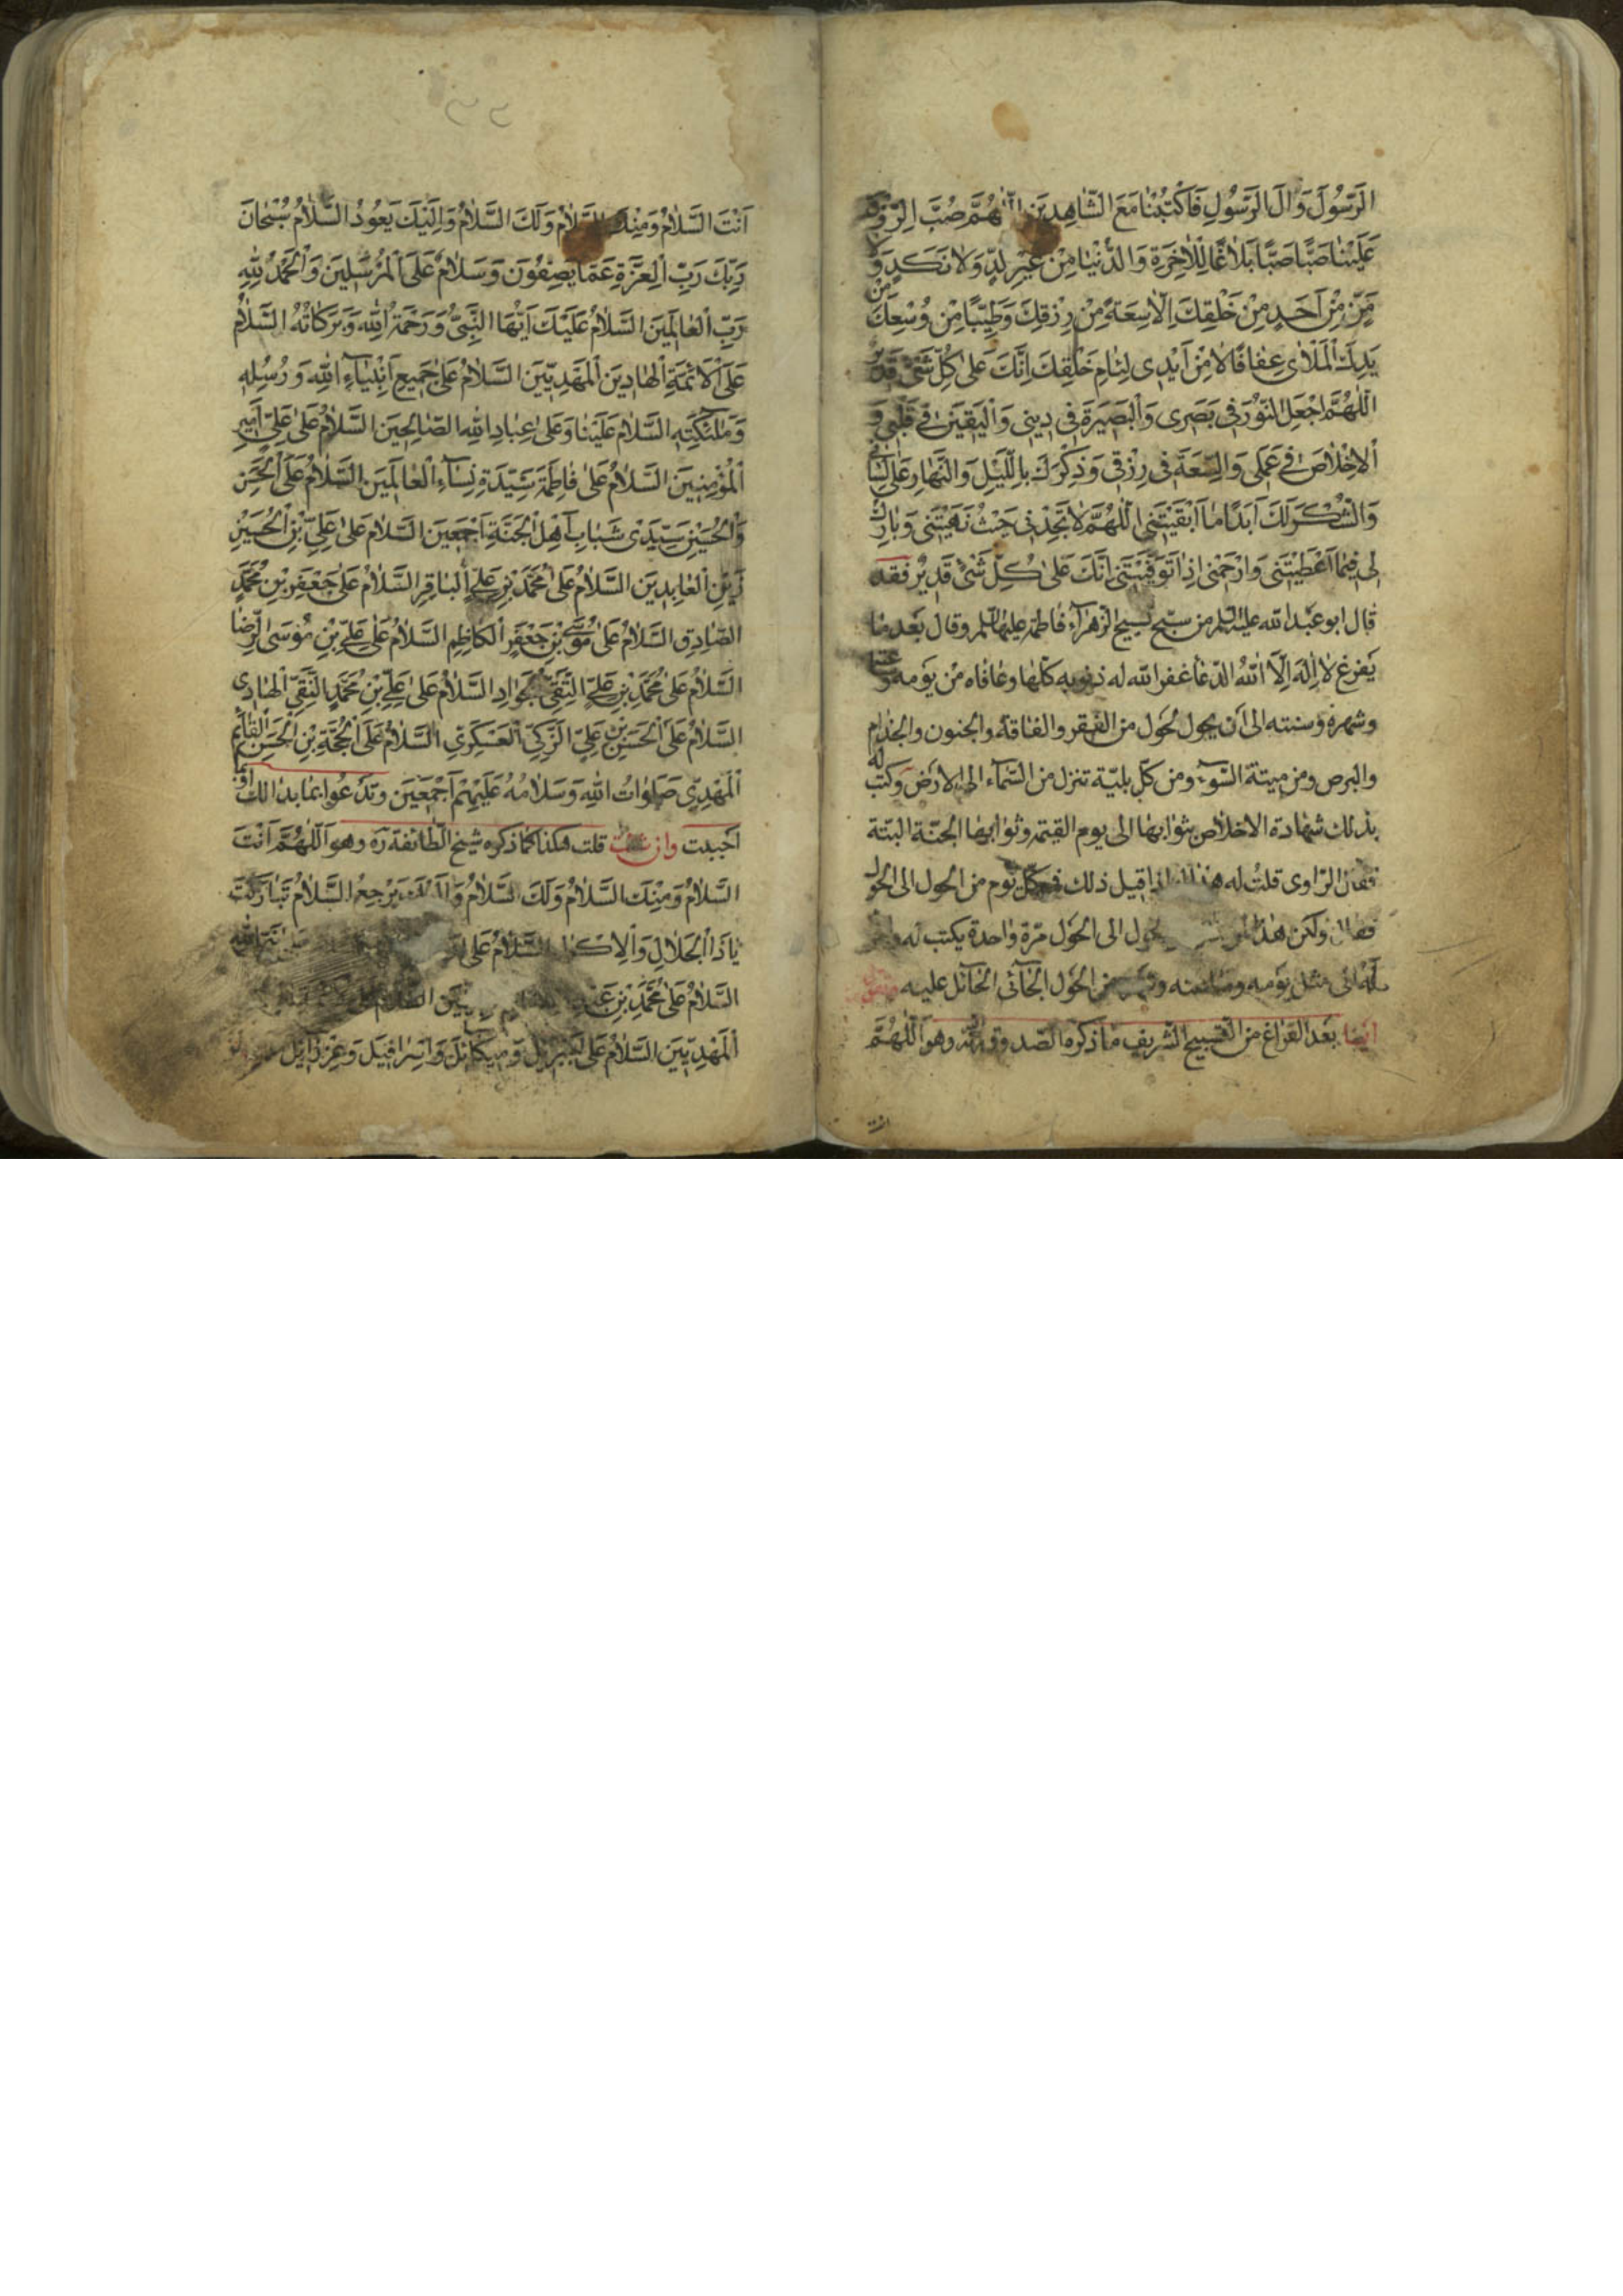 الرَّسُولَ وَآلَ الرَّسُولِ فَاكْتُبْنَا مَعَ الشَّاهِدِينَ اللّٰهُمَّ صُبَّ الرِّزْقَ
عَلَيْنَا صَبًّا صَبًّا بَلَاغًا لِلْآخِرَةِ وَالدُّنْيَا مِنْ غَيْرِ كَدٍّ وَلَا نَكَدٍ وَلَا
مَنٍّ مِنْ أَحَدٍ مِنْ خَلْقِكَ إِلَّا سَعَةً مِنْ رِزْقِكَ وَطَيِّبًا مِنْ وُسْعِكَ مِنْ
يَدِكَ الْمَلْأَى عِفَافًا لَا مِنْ أَيْدِي لِئَامِ خَلْقِكَ إِنَّكَ عَلَى كُلِّ شَيْءٍ قَدِيرٌ
اللّٰهُمَّ اجْعَلِ النُّورَ فِي بَصَرِي وَالْبَصِيرَةَ فِي دِينِي وَالْيَقِينَ فِي قَلْبِي وَ
الْإِخْلَاصَ فِي عَمَلِي وَالسَّعَةَ فِي رِزْقِي وَذِكْرَكَ بِاللَّيْلِ وَالنَّهَارِ عَلَى لِسَانِي
وَالشُّكْرَ لَكَ أَبَدًا مَا أَبْقَيْتَنِي اللّٰهُمَّ لَا تَجِدْنِي حَيْثُ نَهَيْتَنِي وَبَارِكْ
لِي فِيمَا أَعْطَيْتَنِي وَارْحَمْنِي إِذَا تَوَفَّيْتَنِي إِنَّكَ عَلَى كُلِّ شَيْءٍ قَدِيرٌ فقد
قال ابو عبد الله عليه السلم من سبّح تسبيح الزهراء فاطمة عليها السلم وقال بعد ما
يفرغ لا إله إلّا الله الدّعا غفر الله له ذنوبه كلّها وعافاه من يومه
وشهره وسنته الى أن يحول الحول من الفقر والفاقة والجنون والجذام
والبرص ومن ميتة السّوء ومن كلّ بليّة تنزل من السّماء الى الارض وكتب له
بذلك شهادة الاخلاص بثوابها الى يوم القيمة وثوابها الجنّة البتّة
فقال الرّاوى قلت له هذا له اذا قيل ذلك فى كلّ يوم من الحول الى الحول
فقال ولكن هذا الحول الى الحول مرّة واحدة يكتب له
له الى مثل يومه وساعته من الحول الجآئى الحآئل عليه
ايضا بعد الفراغ من التسبيح الشريف ما ذكره الصدوق وهو اللّٰهُمَّ
انت
أَنْتَ السَّلَامُ وَمِنْكَ السَّلَامُ وَلَكَ السَّلَامُ وَإِلَيْكَ يَعُودُ السَّلَامُ سُبْحَانَ
رَبِّكَ رَبِّ الْعِزَّةِ عَمَّا يَصِفُونَ وَسَلَامٌ عَلَى الْمُرْسَلِينَ وَالْحَمْدُ لِلّٰهِ
رَبِّ الْعَالَمِينَ السَّلَامُ عَلَيْكَ أَيُّهَا النَّبِيُّ وَرَحْمَةُ اللّٰهِ وَبَرَكَاتُهُ السَّلَامُ
عَلَى الْأَئِمَّةِ الْهَادِينَ الْمَهْدِيِّينَ السَّلَامُ عَلَى جَمِيعِ أَنْبِيَاءِ اللّٰهِ وَرُسُلِهِ
وَمَلٰئِكَتِهِ السَّلَامُ عَلَيْنَا وَعَلَى عِبَادِ اللّٰهِ الصَّالِحِينَ السَّلَامُ عَلَى عَلِيٍّ أَمِيرِ
الْمُؤْمِنِينَ السَّلَامُ عَلَى فَاطِمَةَ سَيِّدَةِ نِسَاءِ الْعَالَمِينَ السَّلَامُ عَلَى الْحَسَنِ
وَالْحُسَيْنِ سَيِّدَيْ شَبَابِ أَهْلِ الْجَنَّةِ أَجْمَعِينَ السَّلَامُ عَلَى عَلِيِّ بْنِ الْحُسَيْنِ
زَيْنِ الْعَابِدِينَ السَّلَامُ عَلَى مُحَمَّدِ بْنِ عَلِيٍّ الْبَاقِرِ السَّلَامُ عَلَى جَعْفَرِ بْنِ مُحَمَّدٍ
الصَّادِقِ السَّلَامُ عَلَى مُوسَى بْنِ جَعْفَرٍ الْكَاظِمِ السَّلَامُ عَلَى عَلِيِّ بْنِ مُوسَى الرِّضَا
السَّلَامُ عَلَى مُحَمَّدِ بْنِ عَلِيٍّ التَّقِيِّ الْجَوَادِ السَّلَامُ عَلَى عَلِيِّ بْنِ مُحَمَّدٍ النَّقِيِّ الْهَادِي
السَّلَامُ عَلَى الْحَسَنِ بْنِ عَلِيٍّ الزَّكِيِّ الْعَسْكَرِيِّ السَّلَامُ عَلَى الْحُجَّةِ بْنِ الْحَسَنِ الْقَائِمِ
الْمَهْدِيِّ صَلَوَاتُ اللّٰهِ وَسَلَامُهُ عَلَيْهِمْ أَجْمَعِينَ وتدعوا بما بدا لك او بما
احببت وان شئت قلت هكذا كما ذكره شيخ الطّائفة ره وهو اللّٰهُمَّ أَنْتَ
السَّلَامُ وَمِنْكَ السَّلَامُ وَلَكَ السَّلَامُ وَإِلَيْكَ يَرْجِعُ السَّلَامُ تَبَارَكْتَ
يَا ذَا الْجَلَالِ وَالْإِكْرَامِ السَّلَامُ عَلَى
السَّلَامُ عَلَى مُحَمَّدِ بْنِ عَبْدِ
الْمَهْدِيِّينَ السَّلَامُ عَلَى جَبْرَئِيلَ وَمِيكَائِلَ وَإِسْرَافِيلَ وَعِزْرَائِيلَ